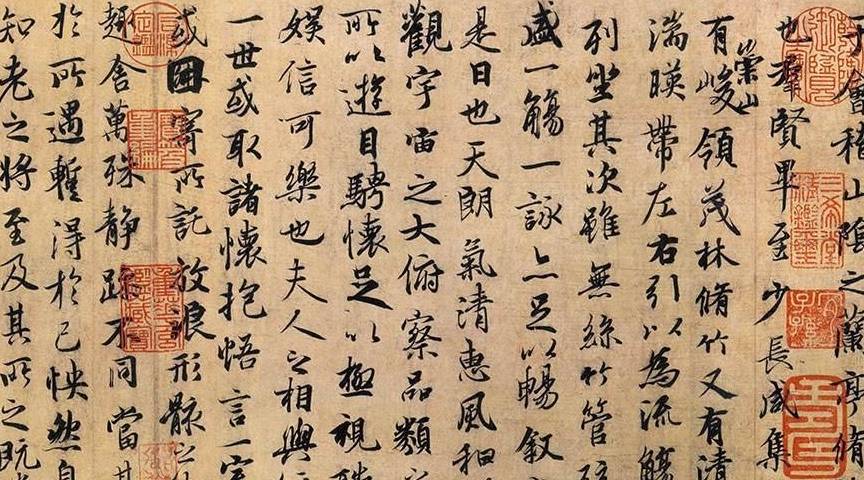 會稽山陰之蘭亭脩
也羣賢畢至少長咸集
崇山
有峻領茂林脩竹又有清
湍暎帶左右引以為流觴
列坐其次雖無絲竹管
盛一觴一詠亦足以暢敘
是日也天朗氣清惠風和
觀宇宙之大俯察品類之
所以遊目騁懷足以極視聽
娛信可樂也夫人之相與
一世或取諸懷抱悟言一室
或因寄所託放浪形骸之
趣舍萬殊靜躁不同當其
於所遇暫得於己怏然自
知老之將至及其所之既